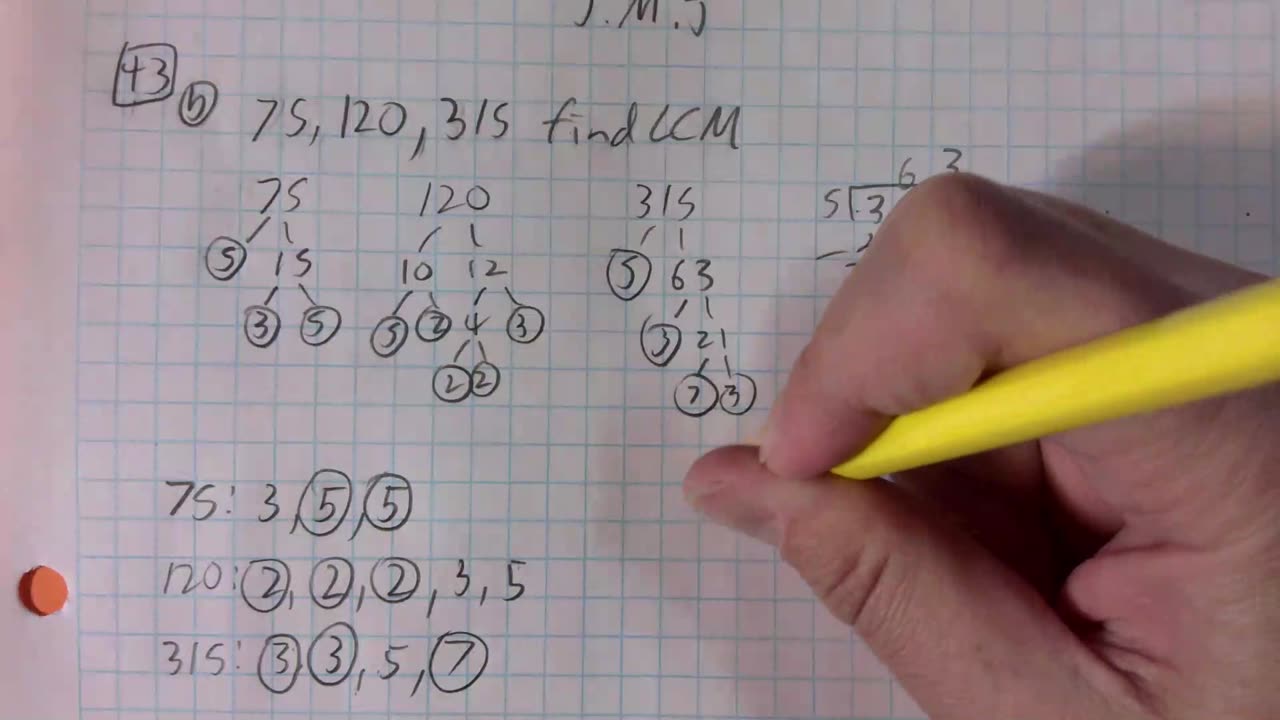 J.M.J
43
b 75, 120, 315 find LCM
75 120 315
5 15 10 12 5 63
3 5 5 2 4 3 3 21
2 2 7 3
6 3
5 3
75: 3, 5, 5
120: 2, 2, 2, 3, 5
315: 3 3, 5, 7